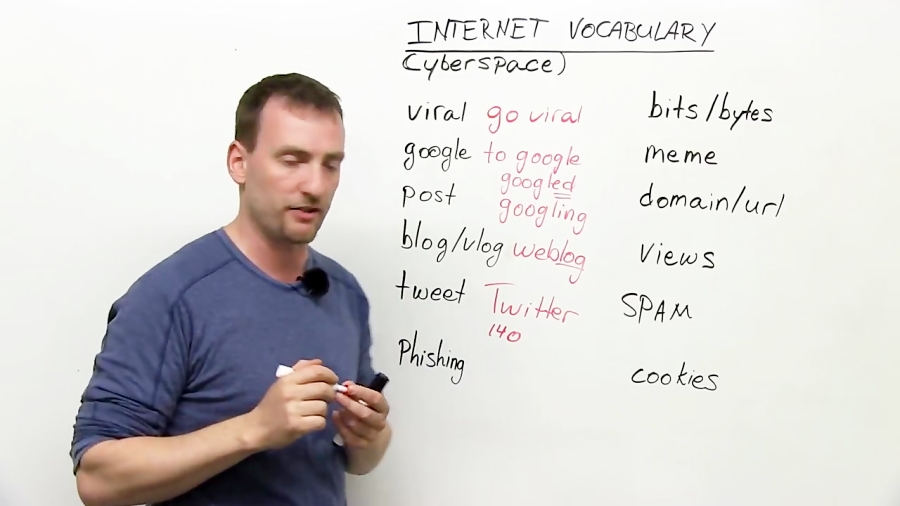 INTERNET VOCABULARY
Cyberspace)
viral go viral
google to google
googled
post googling
blog/vlog weblog
tweet Twitter
140
Phishing
bits/bytes
meme
domain/url
views
SPAM
cookies